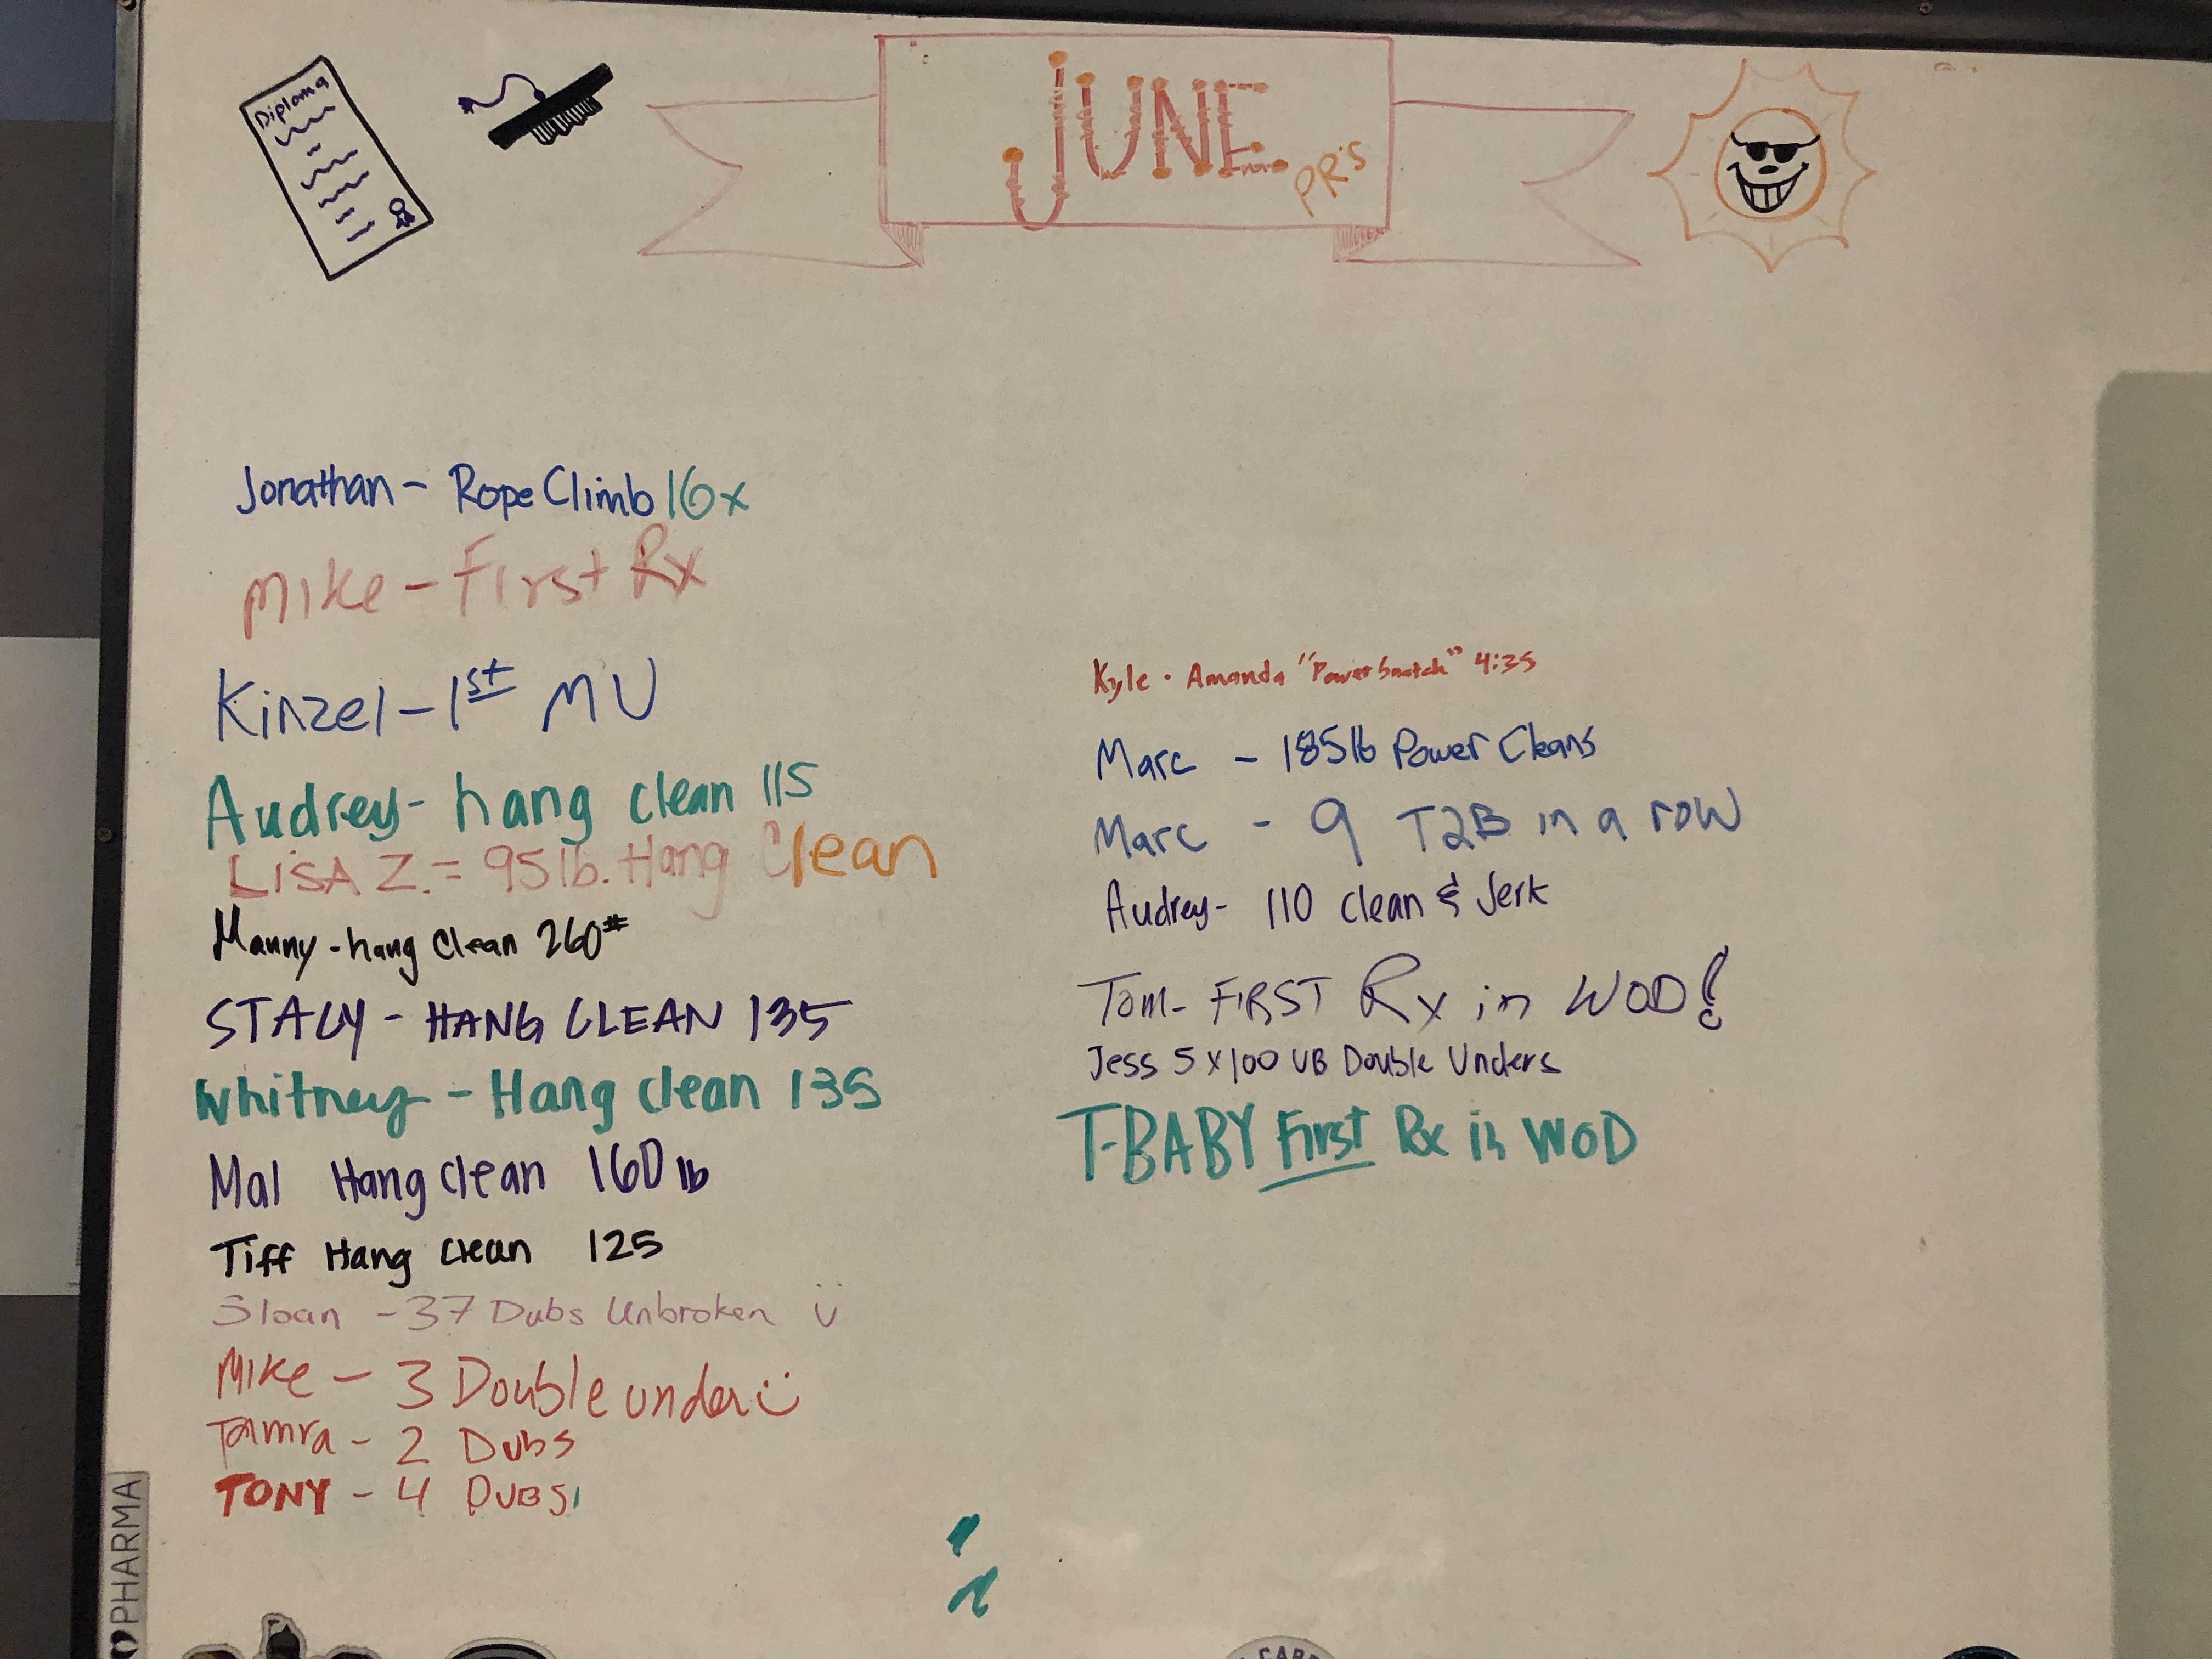 Diploma
JUNE
PR's
Jonathan - Rope Climb 16x
Mike - First Rx
Kinzel - 1st MU
Audrey - hang clean 115
LiSA Z. = 95 lb. Hang Clean
Manny - hang Clean 260#
STACY - HANG CLEAN 135
Whitney - Hang clean 135
Mal Hang clean 160 lb
Tiff Hang Clean 125
Sloan - 37 Dubs Unbroken
Mike - 3 Double under
Tamra - 2 Dubs
TONY - 4 DUBS
Kyle · Amanda "Power Snatch" 4:35
Marc - 185lb Power Cleans
Marc - 9 T2B in a row
Audrey - 110 Clean & Jerk
Tom - FIRST Rx in WOD!
Jess 5 x 100 UB Double Unders
T-BABY First Rx in WOD
PHARMA